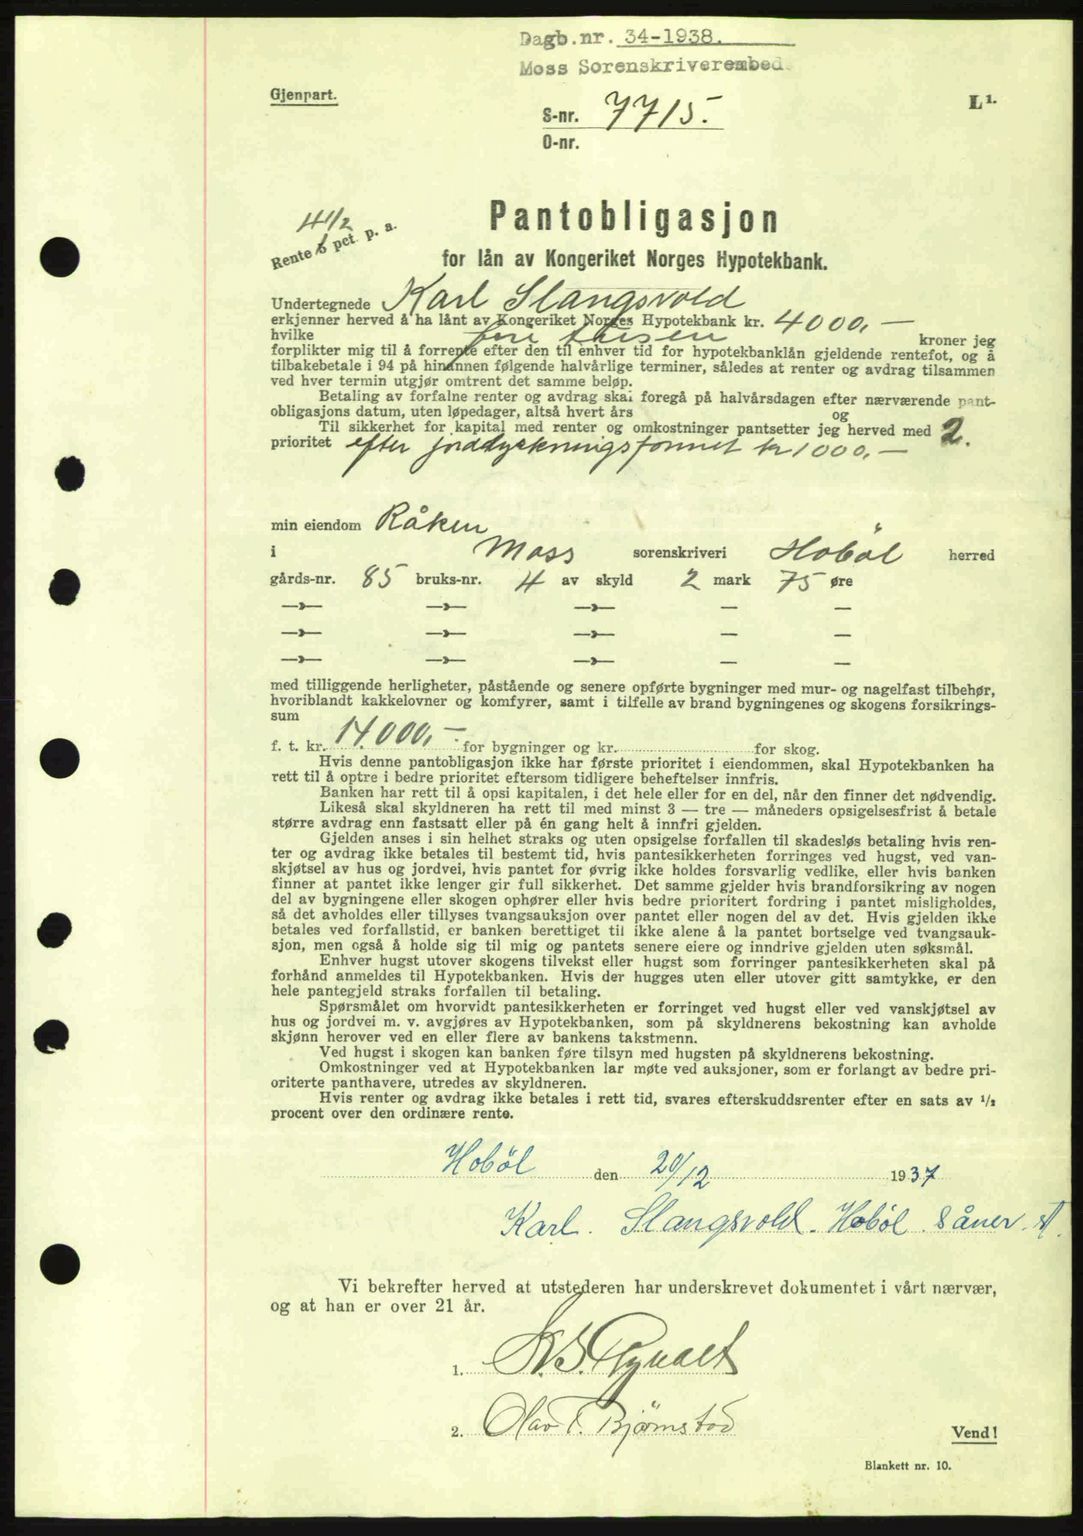 Dagb.nr. 34-1938.
Moss Sorenskriverembed
Gjenpart.
L 1.
S-nr. 7715.-
O-nr.
Pantobligasjon
4 1/2
Rente 6 pct. p. a.
for lån av Kongeriket Norges Hypotekbank.
Undertegnede Karl Slangsvold
erkjenner herved å ha lånt av Kongeriket Norges Hypotekbank kr. 4000,-
hvilke fire tusen kroner jeg
forplikter mig til å forrente efter den til enhver tid for hypotekbanklån gjeldende rentefot, og å
tilbakebetale i 94 på hinannen følgende halvårlige terminer, således at renter og avdrag tilsammen
ved hver termin utgjør omtrent det samme beløp.
Betaling av forfalne renter og avdrag skal foregå på halvårsdagen efter nærværende pant-
obligasjons datum, uten løpedager, altså hvert års og
Til sikkerhet for kapital med renter og omkostninger pantsetter jeg herved med 2.
prioritet efter jorddyrkningsfonnet kr 1000,-
min eiendom Råken
i Moss sorenskriveri Hobøl herred
gårds-nr. 85 bruks-nr. 4 av skyld 2 mark 75 øre
—„— —„— —„— — —
—„— —„— —„— — —
—„— —„— —„— — —
med tilliggende herligheter, påstående og senere opførte bygninger med mur- og nagelfast tilbehør,
hvoriblandt kakkelovner og komfyrer, samt i tilfelle av brand bygningenes og skogens forsikrings-
sum
f. t. kr. 14.000,- for bygninger og kr. for skog.
Hvis denne pantobligasjon ikke har første prioritet i eiendommen, skal Hypotekbanken ha
rett til å optre i bedre prioritet eftersom tidligere beheftelser innfris.
Banken har rett til å opsi kapitalen, i det hele eller for en del, når den finner det nødvendig.
Likeså skal skyldneren ha rett til med minst 3 — tre — måneders opsigelsesfrist å betale
større avdrag enn fastsatt eller på én gang helt å innfri gjelden.
Gjelden anses i sin helhet straks og uten opsigelse forfallen til skadesløs betaling hvis ren-
ter og avdrag ikke betales til bestemt tid, hvis pantesikkerheten forringes ved hugst, ved van-
skjøtsel av hus og jordvei, hvis pantet for øvrig ikke holdes forsvarlig vedlike, eller hvis banken
finner at pantet ikke lenger gir full sikkerhet. Det samme gjelder hvis brandforsikring av nogen
del av bygningene eller skogen ophører eller hvis bedre prioritert fordring i pantet misligholdes,
så det avholdes eller tillyses tvangsauksjon over pantet eller nogen del av det. Hvis gjelden ikke
betales ved forfallstid, er banken berettiget til ikke alene å la pantet bortselge ved tvangsauk-
sjon, men også å holde sig til mig og pantets senere eiere og inndrive gjelden uten søksmål.
Enhver hugst utover skogens tilvekst eller hugst som forringer pantesikkerheten skal på
forhånd anmeldes til Hypotekbanken. Hvis der hugges uten eller utover gitt samtykke, er den
hele pantegjeld straks forfallen til betaling.
Spørsmålet om hvorvidt pantesikkerheten er forringet ved hugst eller ved vanskjøtsel av
hus og jordvei m. v. avgjøres av Hypotekbanken, som på skyldnerens bekostning kan avholde
skjønn herover ved en eller flere av bankens takstmenn.
Ved hugst i skogen kan banken føre tilsyn med hugsten på skyldnerens bekostning.
Omkostninger ved at Hypotekbanken lar møte ved auksjoner, som er forlangt av bedre pri-
oriterte panthavere, utredes av skyldneren.
Hvis renter og avdrag ikke betales i rett tid, svares efterskuddsrenter efter en sats av 1/2
procent over den ordinære rente.
Hoböl den 20/12 1937
Karl. Slangsvold. Hobøl Såner st.
Vi bekrefter herved at utstederen har underskrevet dokumentet i vårt nærvær,
og at han er over 21 år.
1.
2. Olav T. Bjørnstad
Vend!
Blankett nr. 10.